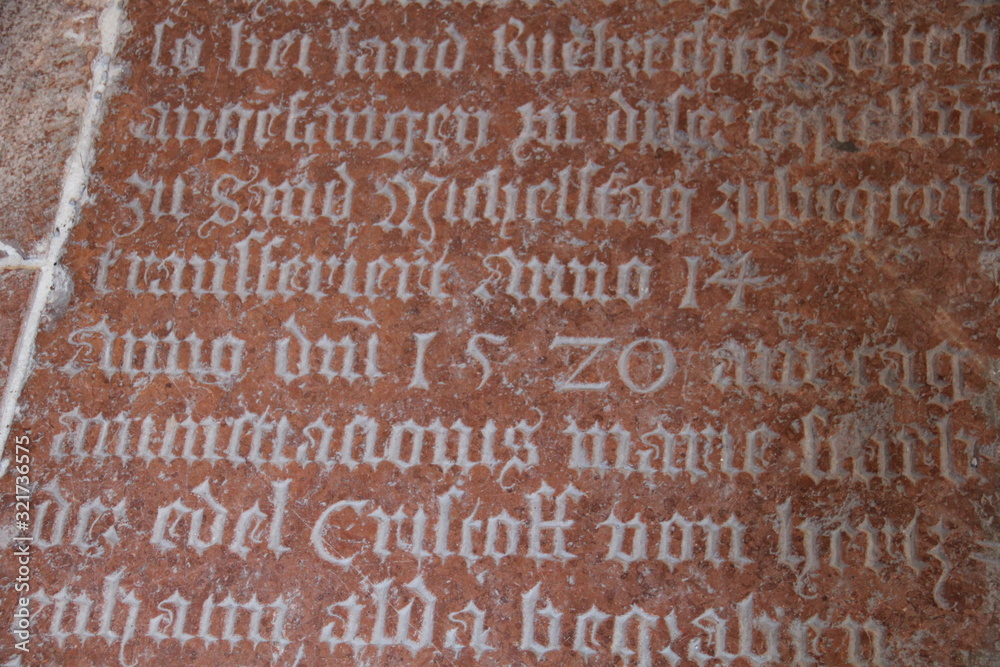 so bei sand Ruebrechtz zeiten
angefangen zu diser capelln
zu Sand Michelstag zubegern
transferiert Anno 14
Anno dm̄ 1520 am tag
anunctiacionis marie starb
der edel Cristoff von hertz
enhaim alda begraben
Adobe Stock | #321736575